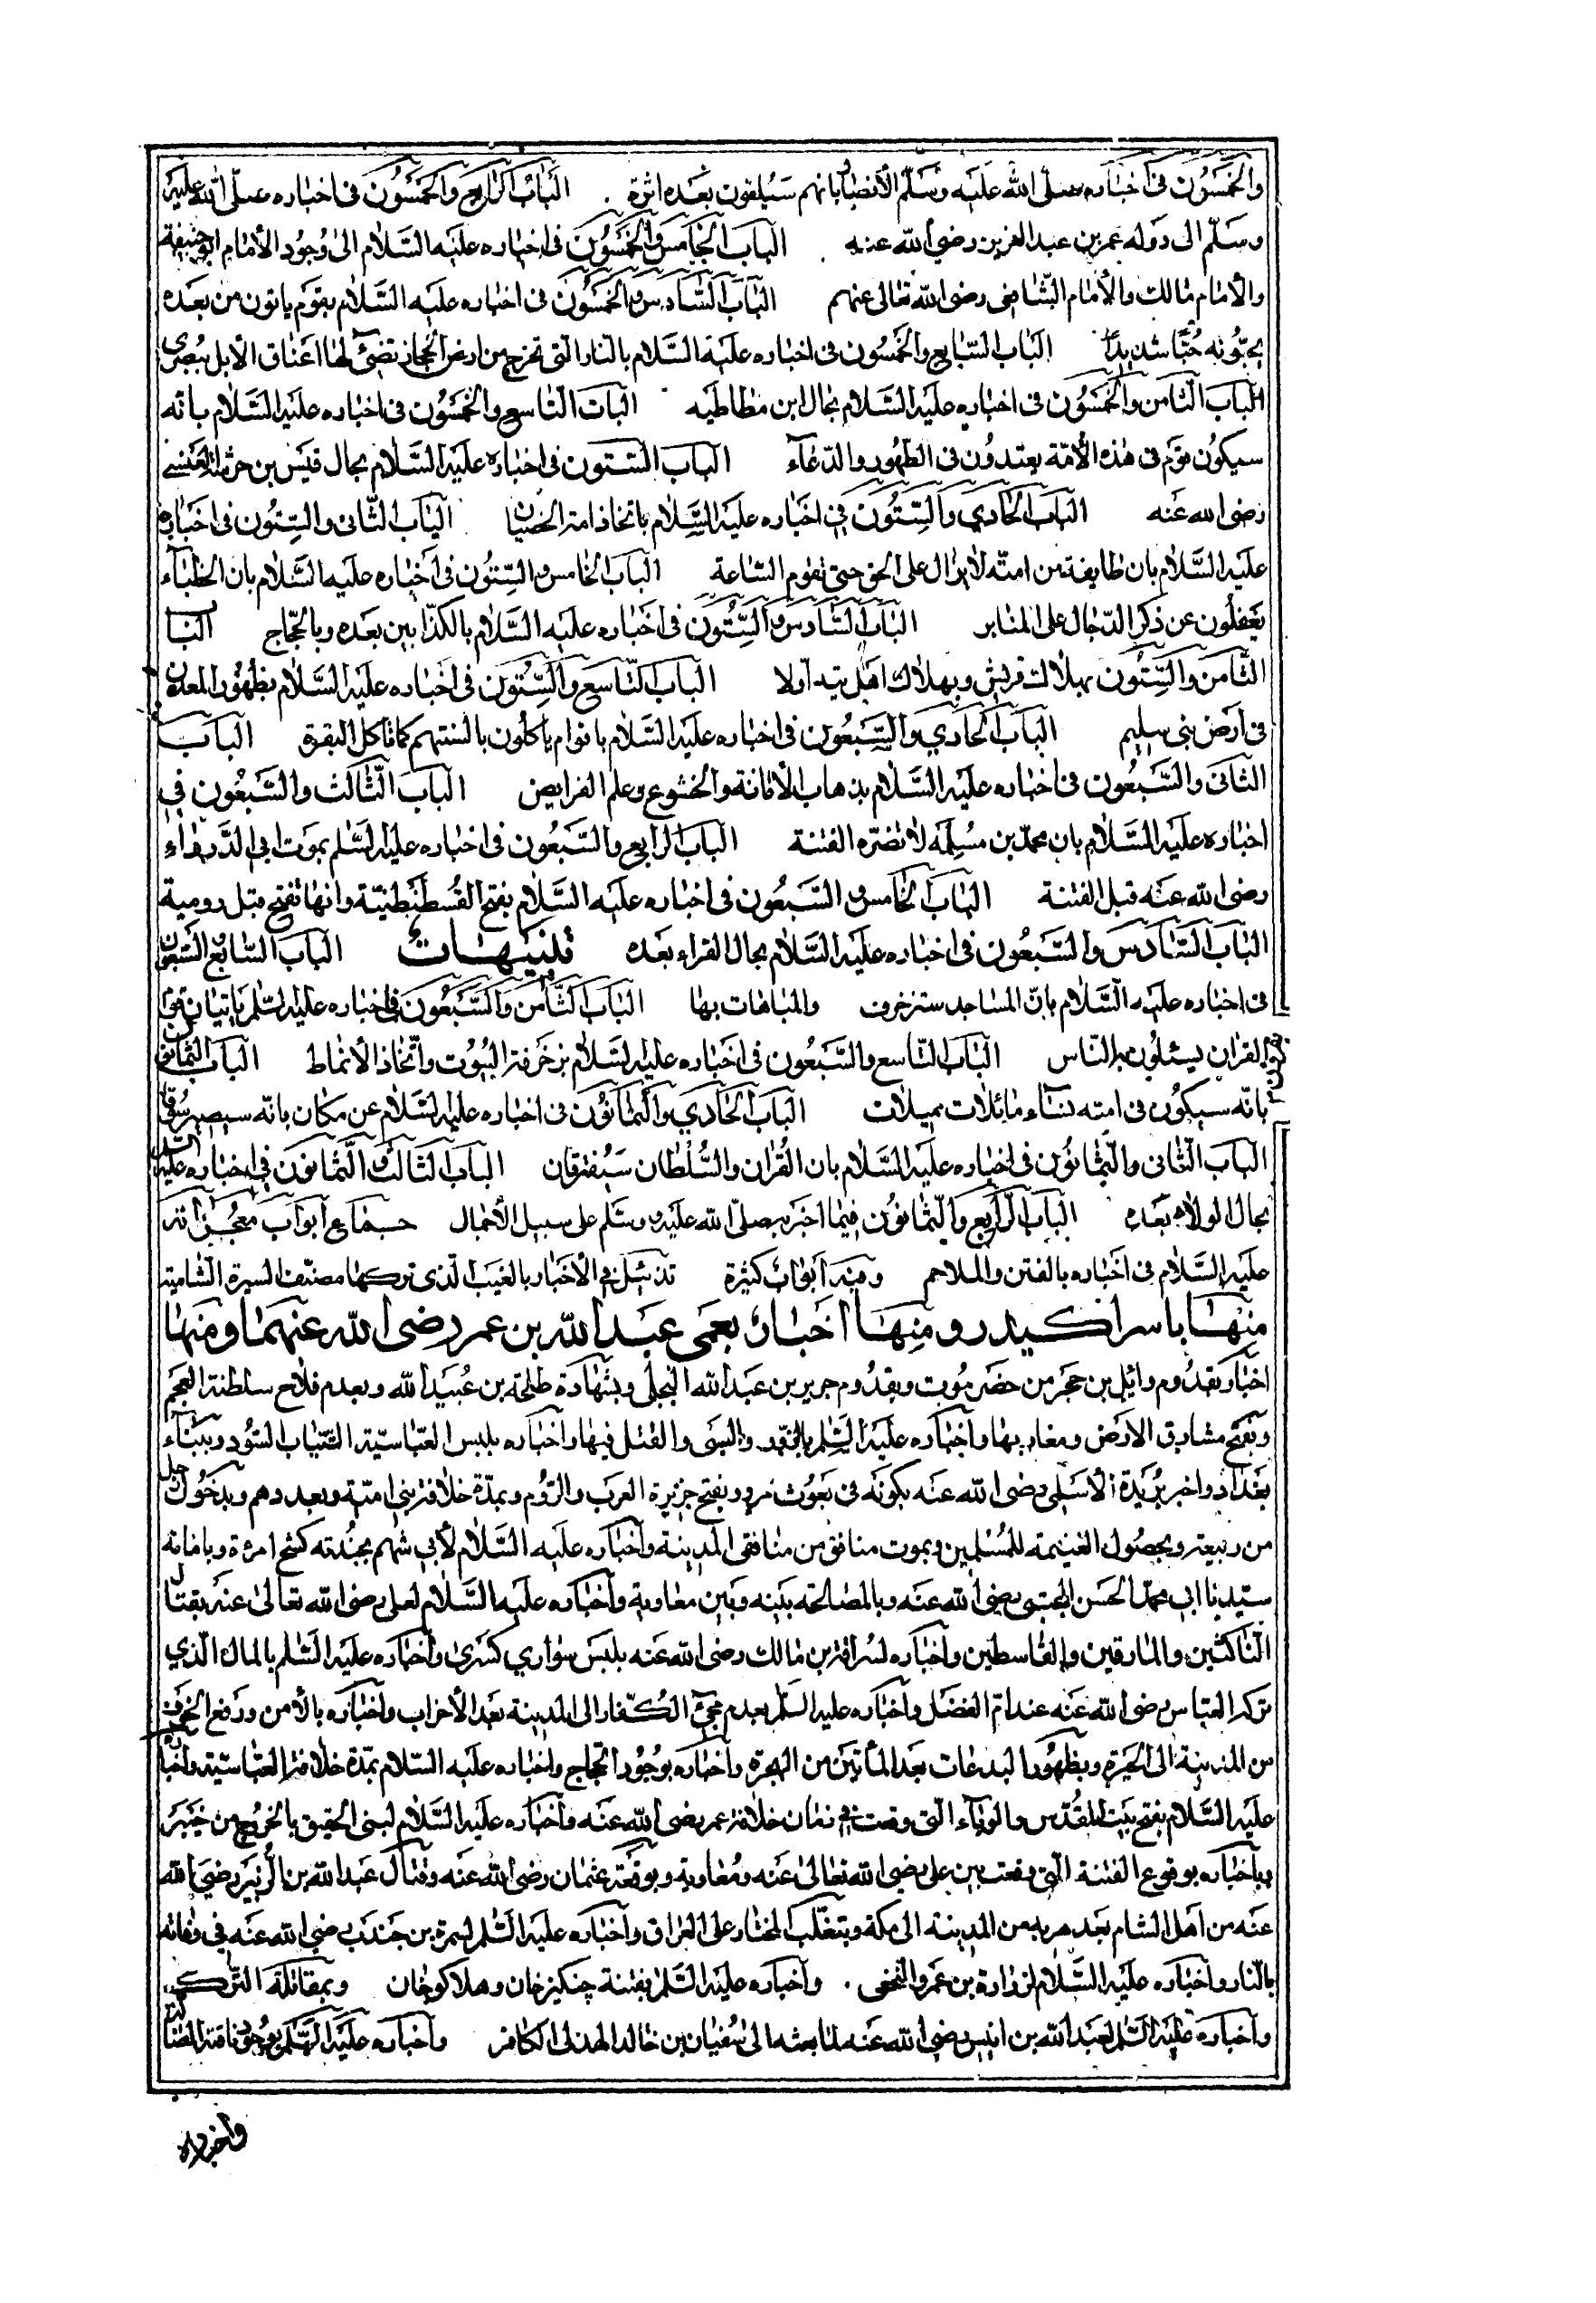 والخمسون في اخباره صلى الله عليه وسلم الأنصار بانهم سيلقون بعده اثرة . الباب الرابع والخمسون في اخباره صلى الله عليه
وسلم الى دولة عمر بن عبد العزيز رضي الله عنه . الباب الخامس والخمسون في اخباره عليه السلام الى وجود الأمام ابو حنيفة
والأمام مالك والأمام الشافعى رضى الله تعالى عنهم الباب السادس والخمسون في اخباره عليه السلام بقوم ياتون من بعده
يحبونه حبا شديدا الباب السابع والخمسون فى اخباره عليه السلام بالنار التى تخرج من ارض الحجاز تضئ لها اعناق الأبل ببصرى
الباب الثامن والخمسون فى اخباره عليه السلام بحال ابن مطاطيه الباب التاسع والخمسون فى اخباره عليه السلام بانه
سيكون قوم فى هذه الأمة يعتدون فى الطهور والدعآء الباب الستون فى اخباره عليه السلام بحال قيس بن خرشة العبسى
رضى الله عنه الباب الحادي والستون في اخباره عليه السلام باتخاذ امته الخصيان الباب الثانى والستون فى اخباره
عليه السلام بان طايفة من امته لا يزال على الحق حتى تقوم الساعة الباب الخامس والستون فى اخباره عليه السلام بان الخطبآء
يغفلون عن ذكر الدجال على المنابر الباب السادس والستون فى اخباره عليه السلام بالكذابين بعده وبالحجاج البا
الثامن والستون بهلاك قريش وبهلاك اهل بيته اولا الباب التاسع والستون فى اخباره عليه السلام بظهور المعادن
فى ارض بنى سليم الباب الحادي والسبعون فى اخباره عليه السلام باقوام ياكلون بالسنتهم كما تاكل البقرة الباب
الثانى والسبعون فى اخباره عليه السلام بذهاب الأمانة والخشوع وعلم الفرايض الباب الثالث والسبعون في
اخباره عليه السلام بان محمد بن مسلمه لا تضره الفتنة الباب الرابع والسبعون فى اخباره عليه السلم بموت ابى الدرداء
رضى الله عنه قبل الفتنة الباب الخامس والسبعون فى اخباره عليه السلام بفتح القسطنطنية وانها تفتح قبل رومية
الباب السادس والسبعون فى اخباره عليه السلام بحال القراء بعده تنبيهات الباب السابع والسبعون
فى اخباره عليه السلام بان المساجد ستزخرف والمباهات بها الباب الثامن والسبعون فى اخباره عليه السلم باتيان قوم
القران يسئلون به الناس الباب التاسع والسبعون فى اخباره عليه السلام بزخرفة البيوت واتخاذ الأنماط الباب الثمانون
بانه سيكون فى امته نسآء مائلات مميلات الباب الحادي والثمانون فى اخباره عليه السلام عن مكان بانه سيصير سوقا
الباب الثانى والثمانون فى اخباره عليه السلام بان القران والسلطان سيفترقان الباب الثالث والثمانون فى اخباره عليه السلم
بحال الولاة بعده الباب الرابع والثمانون فيما اخبر به صلى الله عليه وسلم على سبيل الأجمال جماع ابواب معجزاته
عليه السلام فى اخباره بالفتن والملاحم وفيه ابواب كثيرة تذئيل فى الأخبار بالغيب الذى تركها مصنف السيرة الشامية
منها باسر اكيدر ومنها اخبار بعمى عبد الله بن عمر رضى الله عنهما ومنها
اخبار بقدوم وائل بن حجر من حضرموت وبقدوم جرير بن عبد الله البجلى وبشهادة طلحة بن عبيد الله وبعدم فلاح سلطنة العجم
وبفتح مشارق الارض ومغاربها واخباره عليه السلم والسبى والقتل فيها واخباره بلبس العباسية الثياب السود وببنآء
بغداد واخبر بريدة الأسلمى رضى الله عنه بكونه فى بعوث مرو وبفتح جزيرة العرب والروم وبمدة خلافة بنى امية وبعددهم وبدخول رجل
من ربيعة وبحصول الغنيمة للمسلمين وبموت منافق من منافقى المدينة واخباره عليه السلام لأبى شهم بجبذته كشح امرءة وبامامة
سيدنا ابى محمد الحسن المجتبى رضى الله عنه وبالمصالحة بينه وبين معاوية واخباره عليه السلام لعلى رضى الله تعالى عنه بقتال
الناكثين والمارقين والقاسطين واخباره لسراقة بن مالك رضى الله عنه بلبس سواري كسرى واخباره عليه السلم بالمال الذي
تركه العباس رضى الله عنه عند ام الفضل واخباره عليه السلم بعدم مجئ الكفار الى المدينة بعد الأحزاب واخباره بالأمن ورفع الخوف
من المدينة الى الحيرة وبظهور البدعات بعد المأتين من الهجرة واخباره بوجود الحجاج واخباره عليه السلام بمدة خلافة العباسية واخباره
عليه السلام بفتح بيت المقدس والوباء التى وقعت فى زمان خلافة عمر رضى الله عنه واخباره عليه السلام لبنى الحقيق بالخروج من خيبر
وباخباره بوقوع الفتنة التى وقعت بين على رضى الله تعالى عنه ومعاوية وبوقعة عثمان رضى الله عنه وقتال عبد الله بن الزبير رضي الله
عنه من اهل الشام بعد هربه من المدينة الى مكة وبتغلب المختار على العراق واخباره عليه السلم لسمرة بن جندب رضى الله عنه فى وفاته
بالنار واخباره عليه السلام لزرارة بن عمرو النخعى . واخباره عليه السلم بفتنة چنكيز خان وهلاكو خان وبمقاتلة الترك
واخباره عليه السلم لعبد الله بن انيس رضى الله عنه لما بعثه الى سفيان بن خالد الهذلى الكافر واخباره عليه السلم بوجود ناقته
واخباره